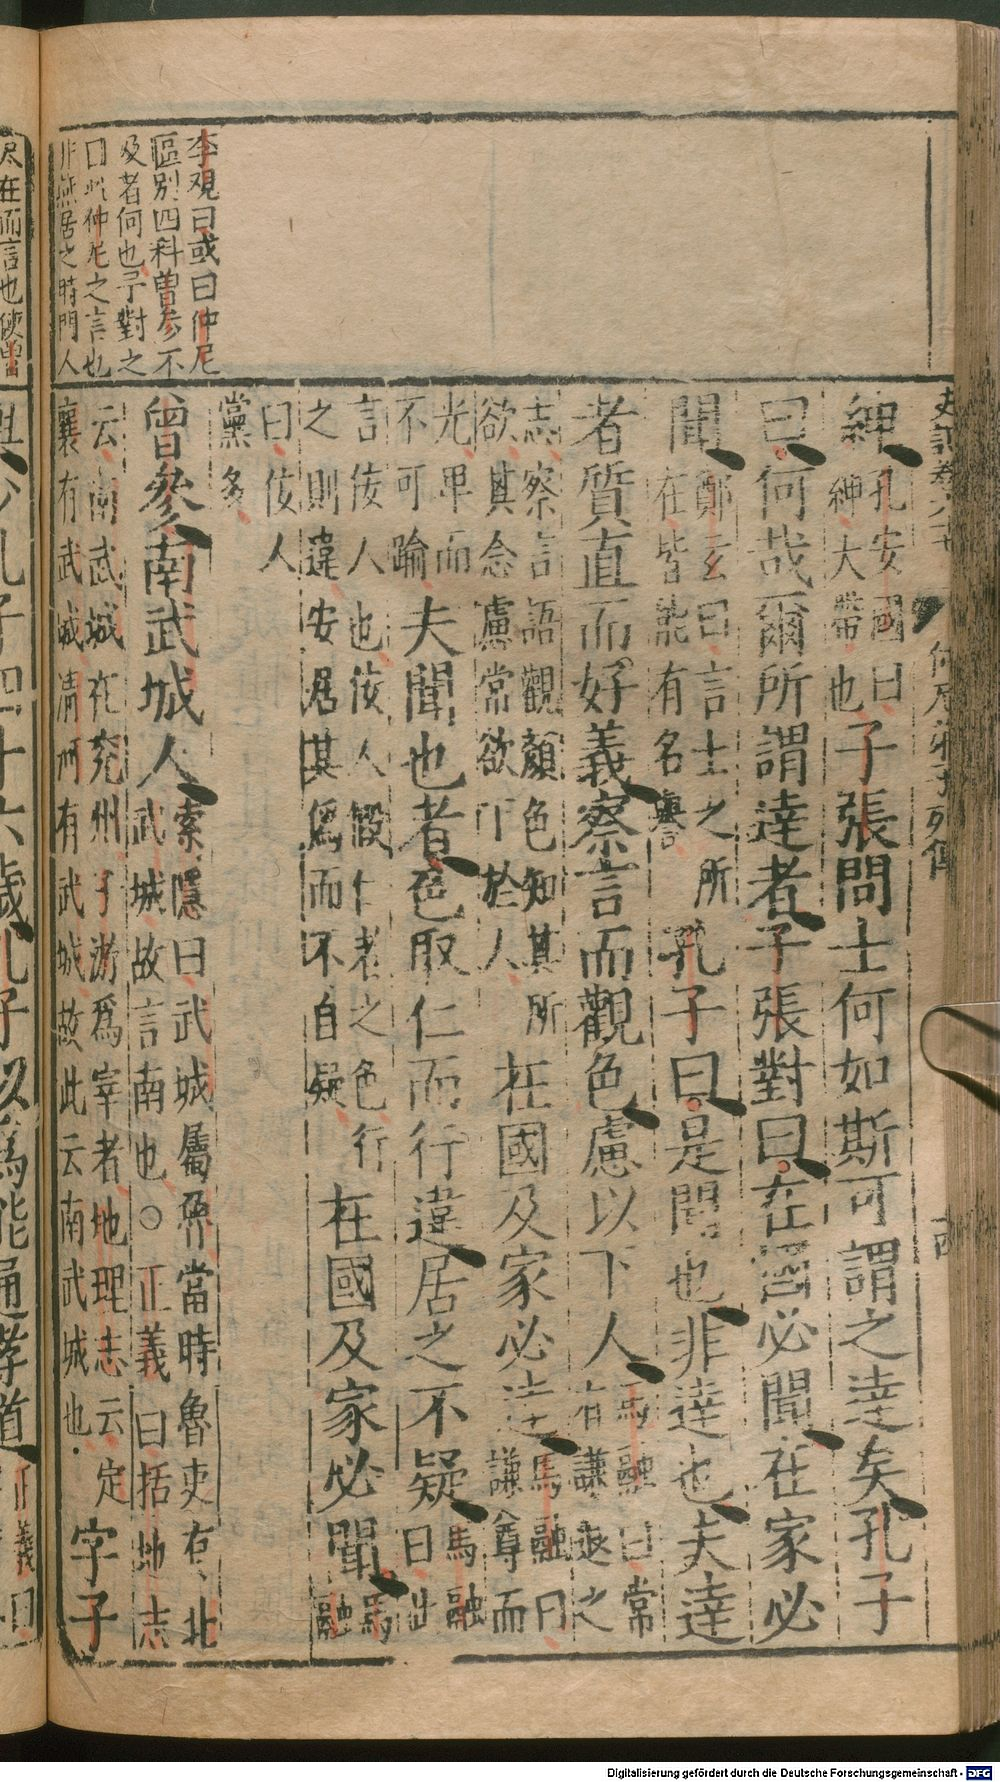 史記卷六十七　仲尼弟子列傳
李覯曰或曰仲尼
區別四科曾参不
及者何也予對之
曰此仲尼之言也
非燕居之時門人
紳孔安國曰紳大帶也子張問士何如斯可謂之達矣孔子
曰何哉爾所謂達者子張對曰在國必聞在家必
聞鄭玄曰言士之所在皆能有名譽孔子曰是聞也非達也夫達
者質直而好義察言而觀色慮以下人馬融曰常有謙退之
志察言語觀顏色知其所欲其念慮常欲下於人在國及家必達馬融曰謙尊而
光卑而不可踰夫聞也者色取仁而行違居之不疑馬融曰此
言佞人也佞人假仁者之色行之則違安居其爲而不自疑在國及家必聞馬融
曰佞人黨多
曾參南武城人索隱曰武城屬魯當時魯更有北武城故言南也○正義曰括地志
云南武城在兖州子游爲宰者地理志云定襄有武城清河有武城故此云南武城也字子
在而言也使曾
少孔子四十六歲孔子以爲能通孝道正義曰
Digitalisierung gefördert durch die Deutsche Forschungsgemeinschaft - DFG